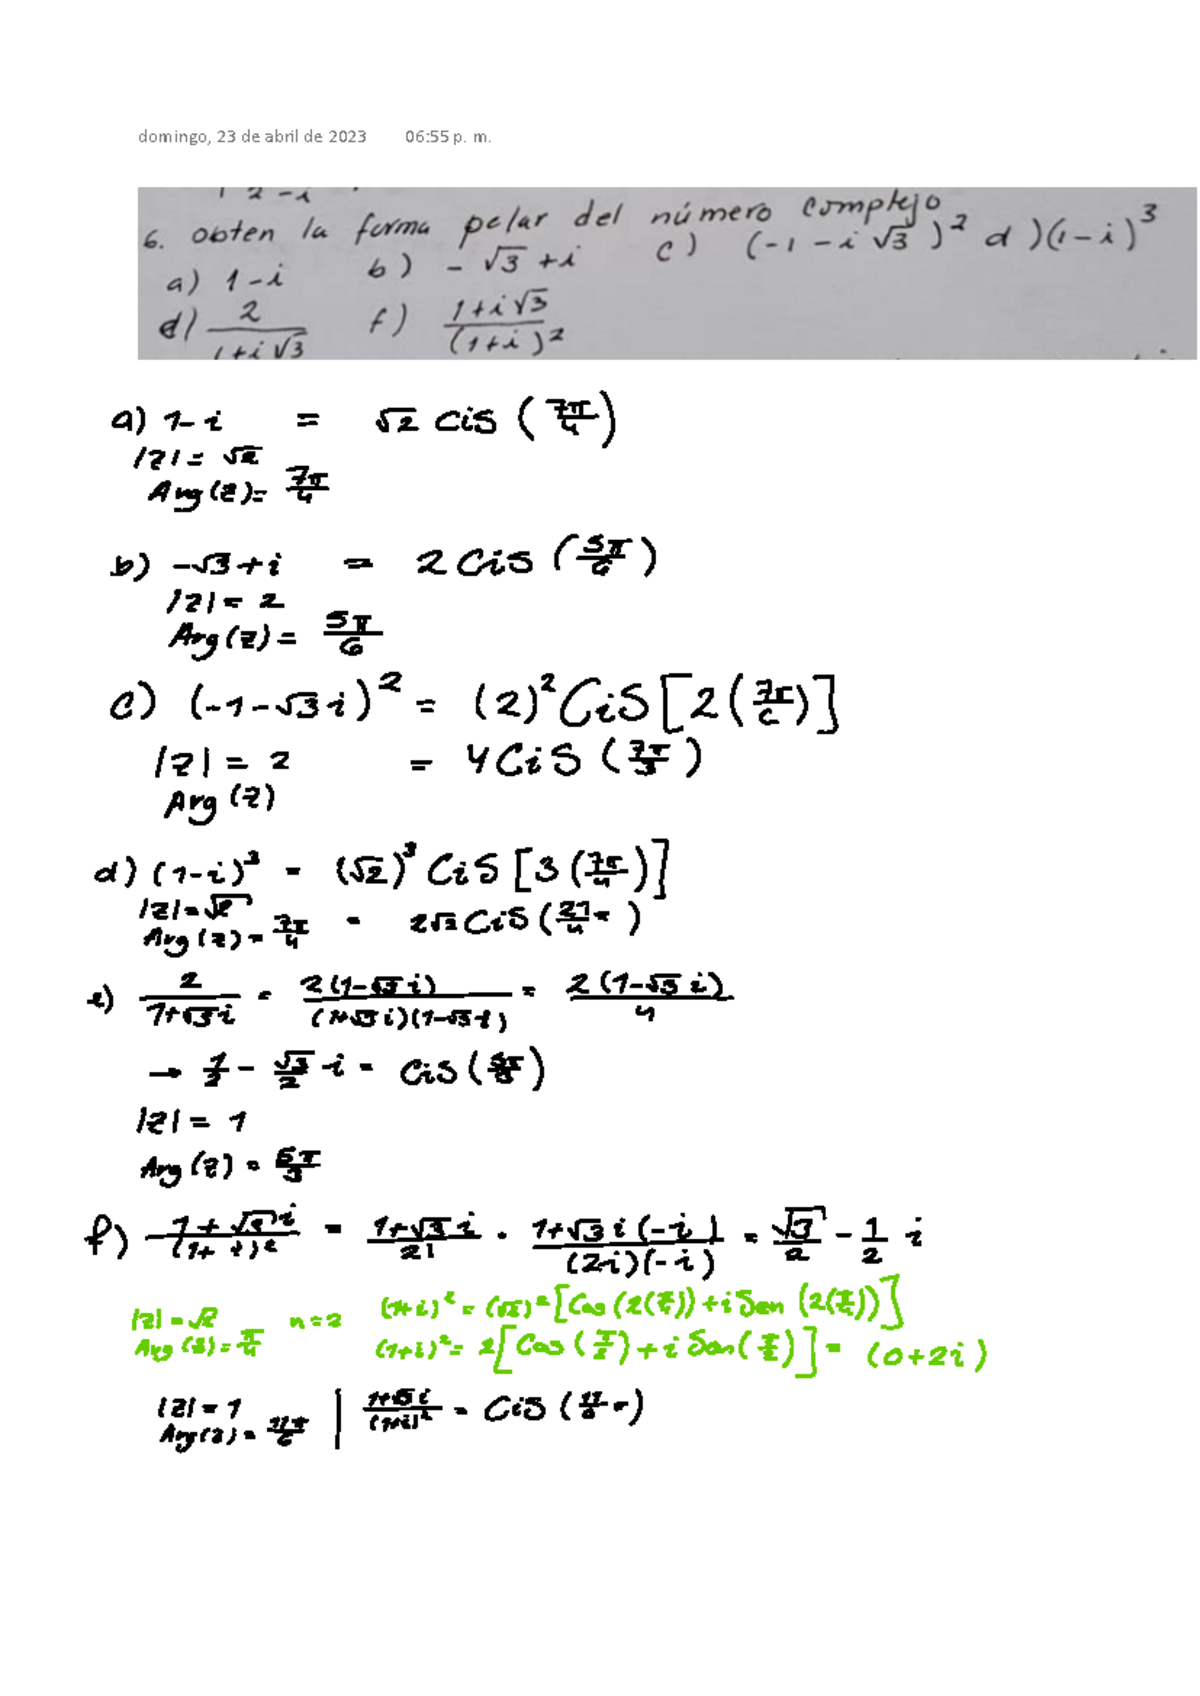 domingo, 23 de abril de 2023 06:55 p. m.
2 - i
6. obten la forma polar del número complejo
a) 1 - i b) - √3 + i c) (-1 - i √3)² d) (1 - i)³
e) 2/(1 + i √3) f) (1 + i √3)/(1 + i)²
a) 1 - i = √2 Cis (7π/4)
|z| = √2
Arg(z) = 7π/4
b) -√3 + i = 2 Cis (5π/6)
|z| = 2
Arg(z) = 5π/6
c) (-1 - √3 i)² = (2)² Cis [2 (7π/6)]
|z| = 2 = 4 Cis (7π/3)
Arg (z)
d) (1 - i)³ = (√2)³ Cis [3 (7π/4)]
|z| = √2
Arg(z) = 7π/4 = 2√2 Cis (21π/4)
e) 2/(1+√3 i) = 2(1-√3 i)/((1+√3 i)(1-√3 i)) = 2(1-√3 i)/4
→ 1/2 - √3/2 i = Cis (5π/3)
|z| = 1
Arg(z) = 5π/3
f) (1 + √3 i)/(1 + i)² = (1+√3 i)/2i · (1+√3 i (-i))/((2i)(-i)) = √3/2 - 1/2 i
|z| = √2 n = 2 (1+i)² = (√2)² [Cos (2(π/4)) + i Sen (2(π/4))]
Arg (z) = π/4 (1+i)² = 2 [Cos (π/2) + i Sen (π/2)] = (0 + 2i)
|z| = 1 | (1+√3 i)/(1+i)² = Cis (11/6 π)
Arg(z) = 11π/6